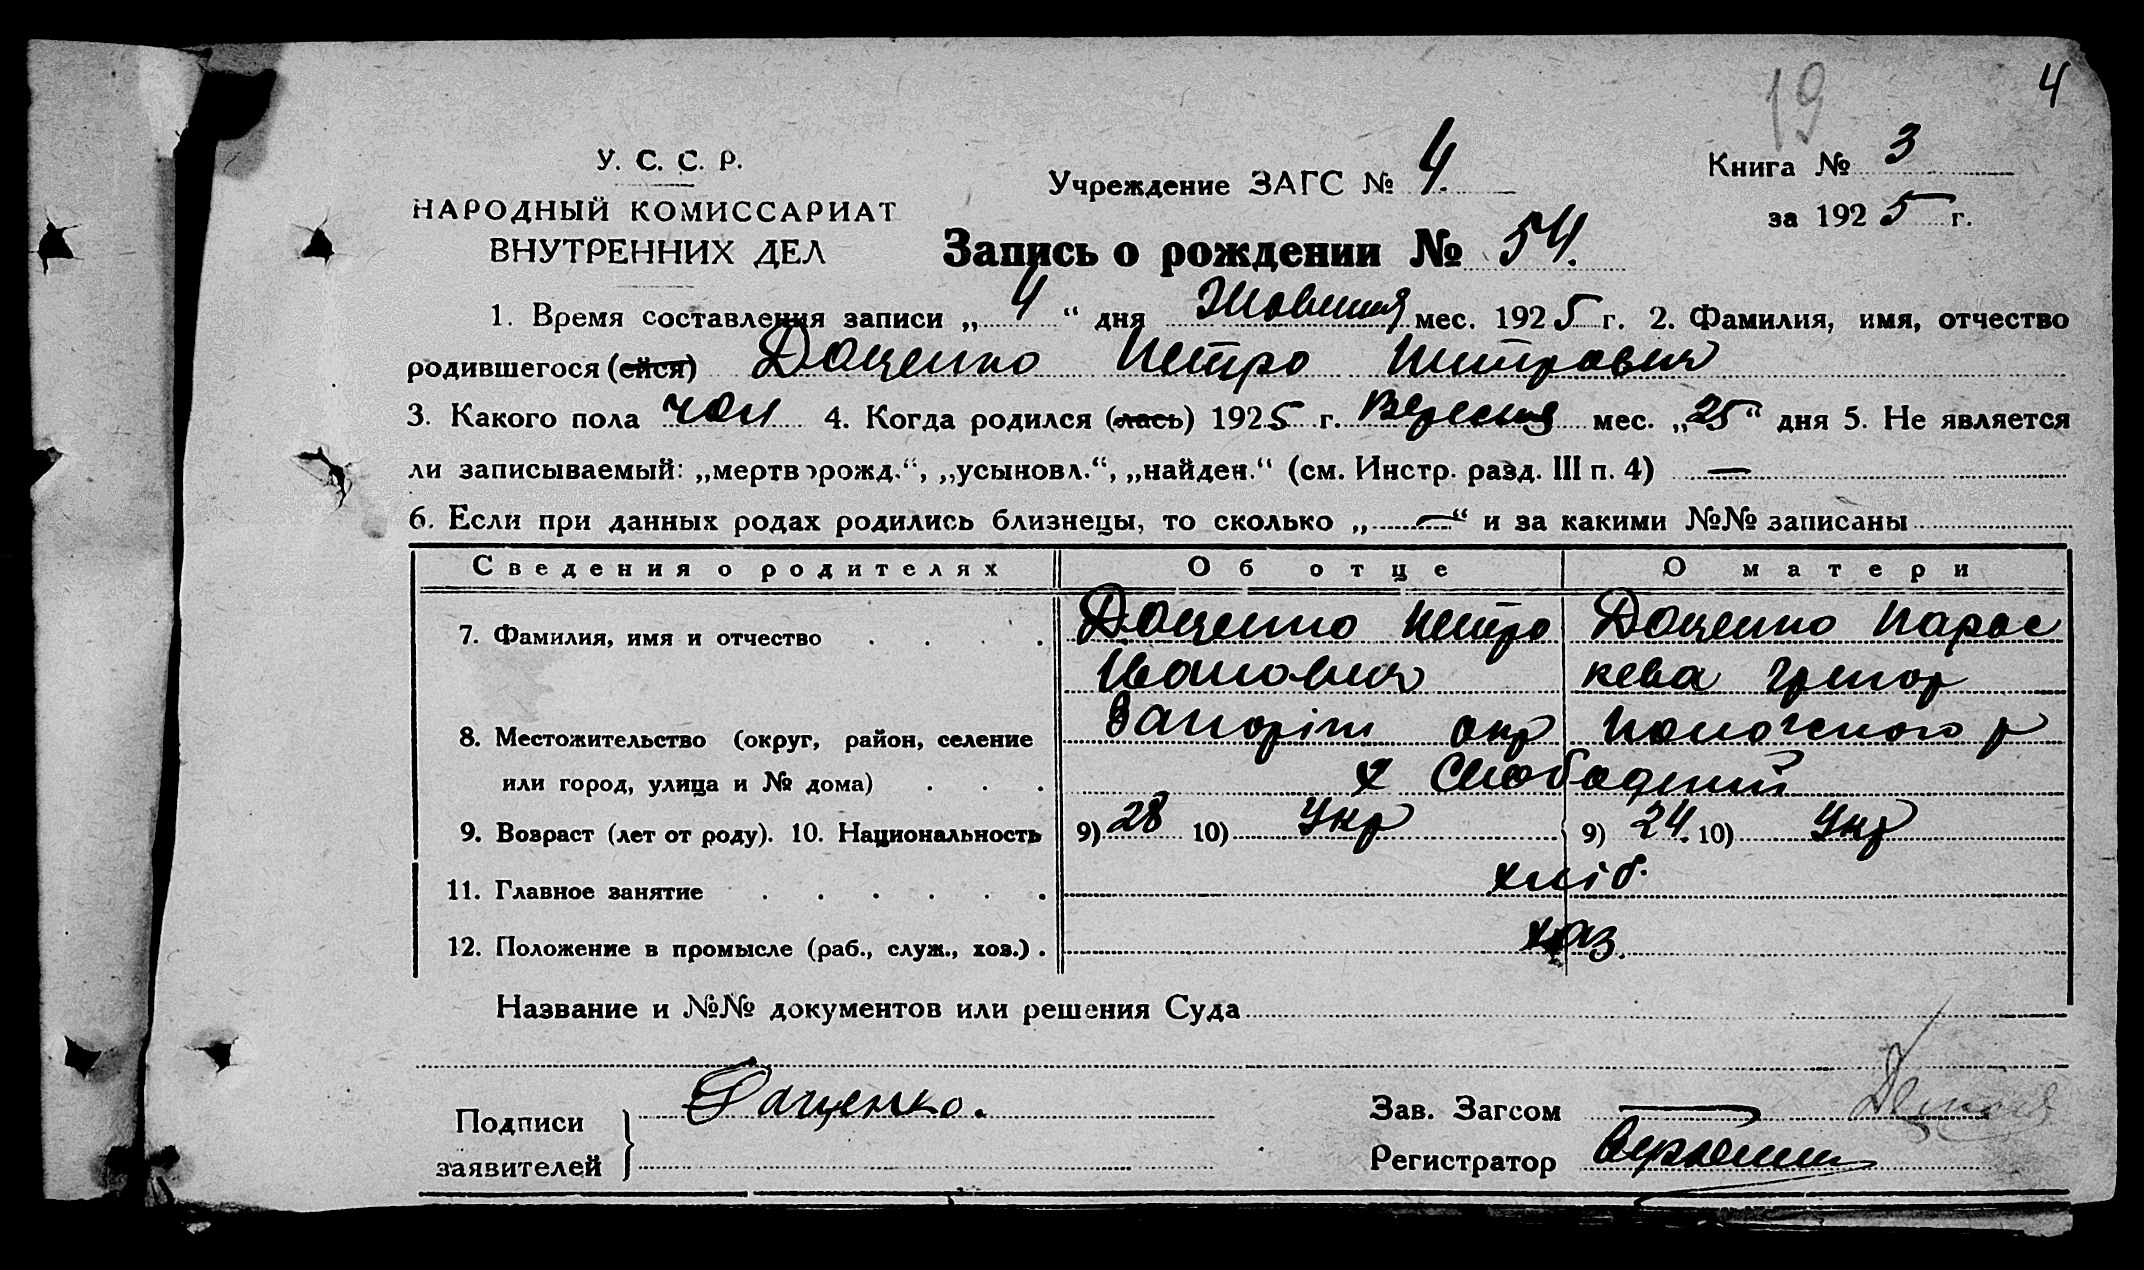 19
4
У. С. С. Р.
НАРОДНЫЙ КОМИССАРИАТ
ВНУТРЕННИХ ДЕЛ
Учреждение ЗАГС № 4.
Книга № 3
за 1925 г.
Запись о рождении № 54.
1. Время составления записи „4“ дня Жовтня мес. 1925 г. 2. Фамилия, имя, отчество
родившегося (ейся) Доценко Петро Петрович
3. Какого пола чол 4. Когда родился (лась) 1925 г. Вересня мес. „25“ дня 5. Не является
ли записываемый: „мертворожд.“, „усыновл.“, „найден.“ (см. Инстр. разд. III п. 4) —
6. Если при данных родах родились близнецы, то сколько „—“ и за какими №№ записаны
Сведения о родителях Об отце О матери
7. Фамилия, имя и отчество Доценко Петро Доценко Парас
Иванович кева Григор
8. Местожительство (округ, район, селение Запоріж окр Пологского р
или город, улица и № дома) х Слободкий
9. Возраст (лет от роду). 10. Национальность 9) 28 10) Укр 9) 24. 10) Укр
11. Главное занятие хліб.
12. Положение в промысле (раб., служ., хоз.) хаз.
Название и №№ документов или решения Суда
Подписи
заявителей
Даценко.
Зав. Загсом
Регистратор